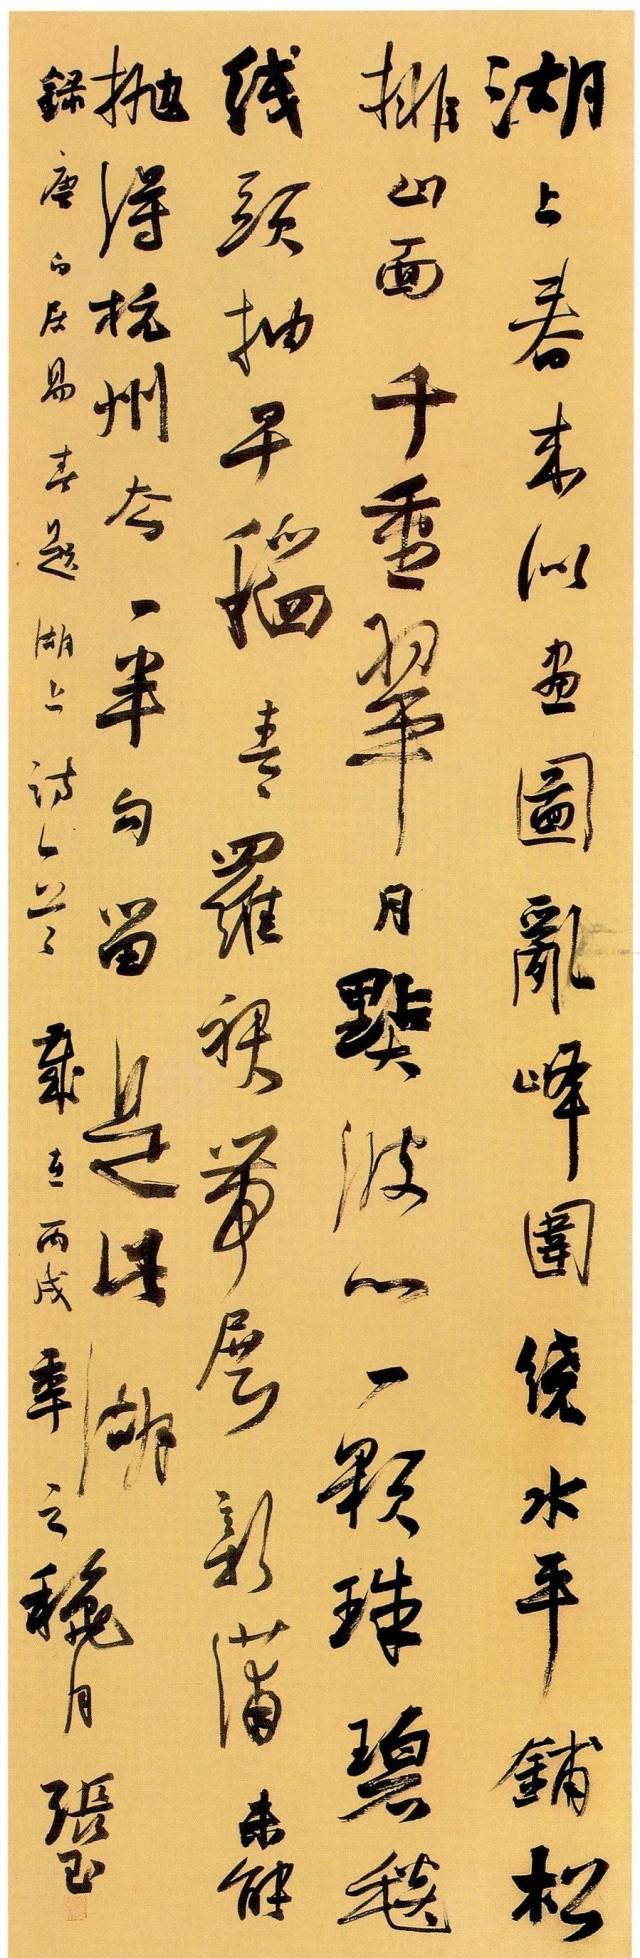 湖上春来似画圖亂峰圍绕水平鋪松
排山面千重翠月點波心一顆珠碧毯
线頭抽早稻青羅裙帶展新蒲未能
抛得杭州去一半勾留是此湖
錄唐白居易春题湖上诗一首歲在丙戌秊之穐月張玉